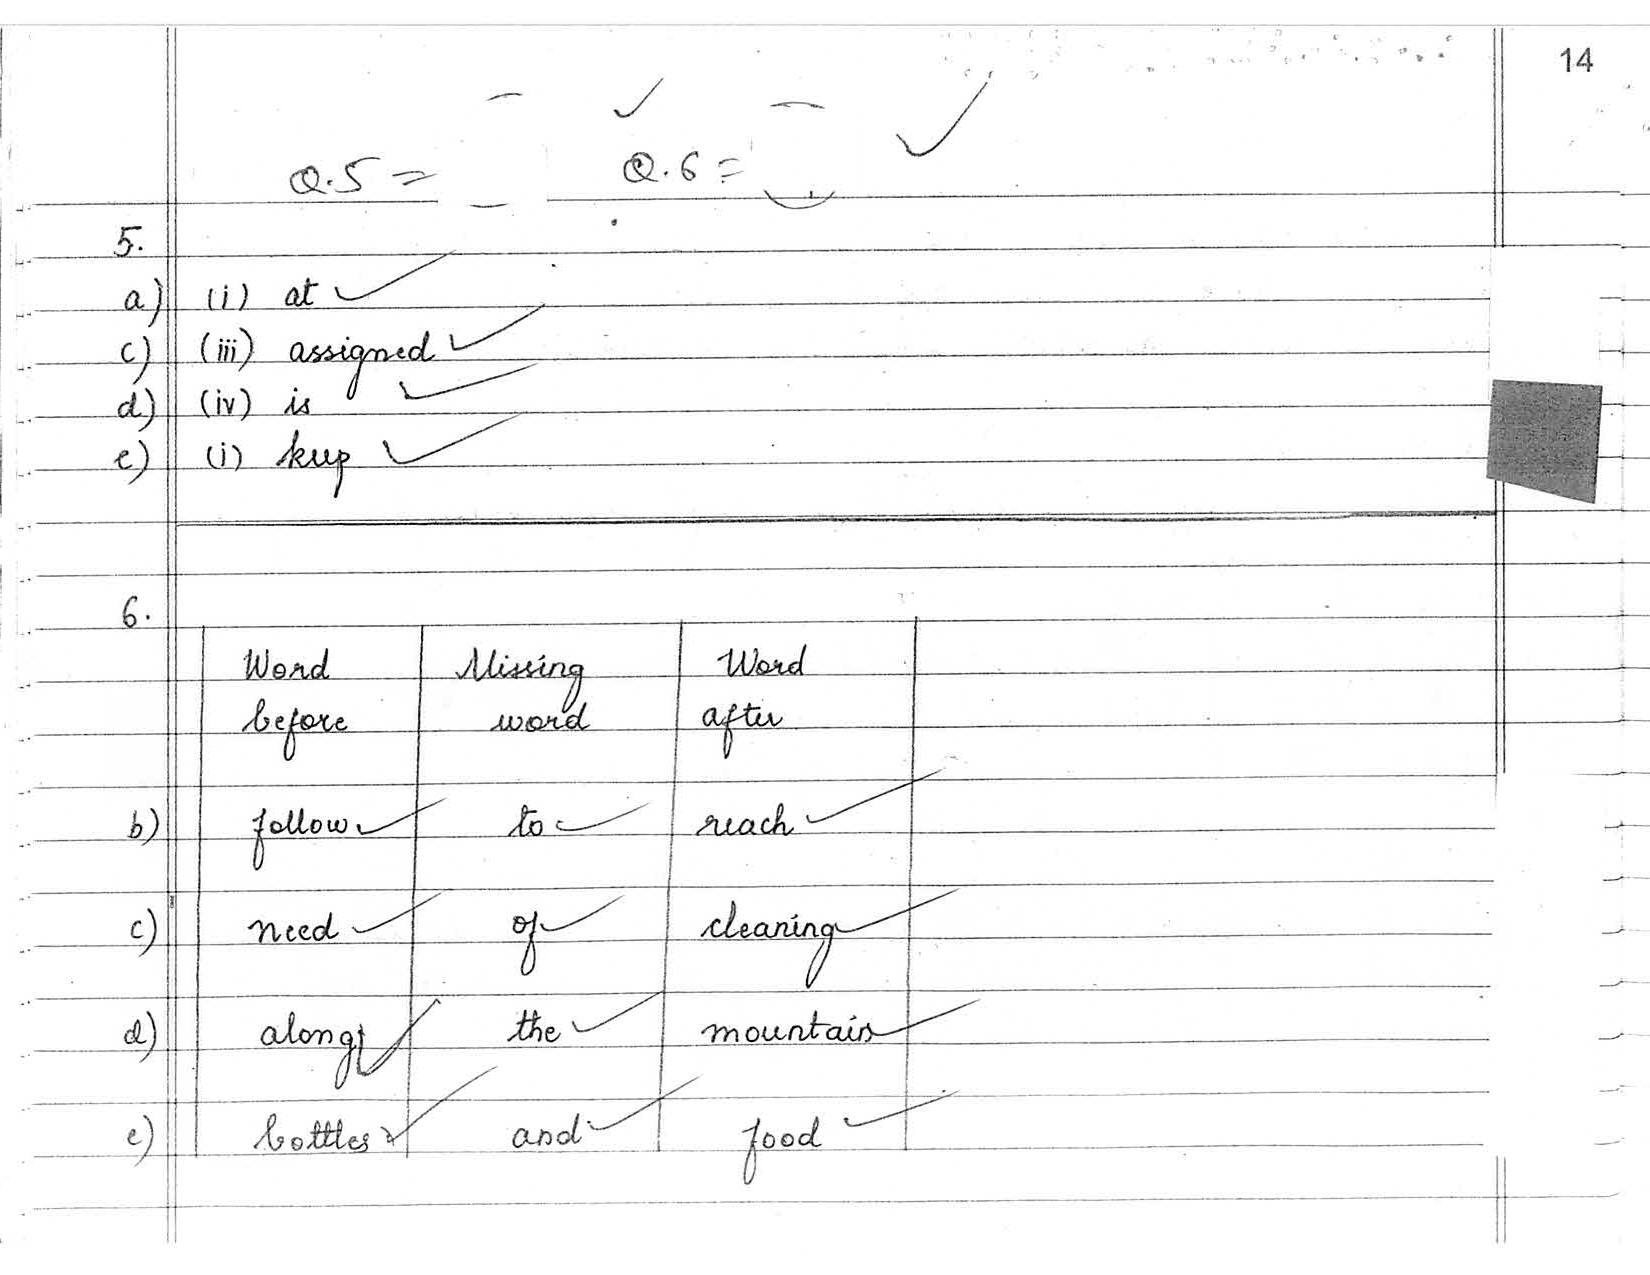 14
Q.5 = Q.6 =
5.
a) (i) at
c) (iii) assigned
d) (iv) is
e) (i) keep
6.
Word before Missing word Word after
b) follow to reach
c) need of cleaning
d) along the mountain
e) bottles and food